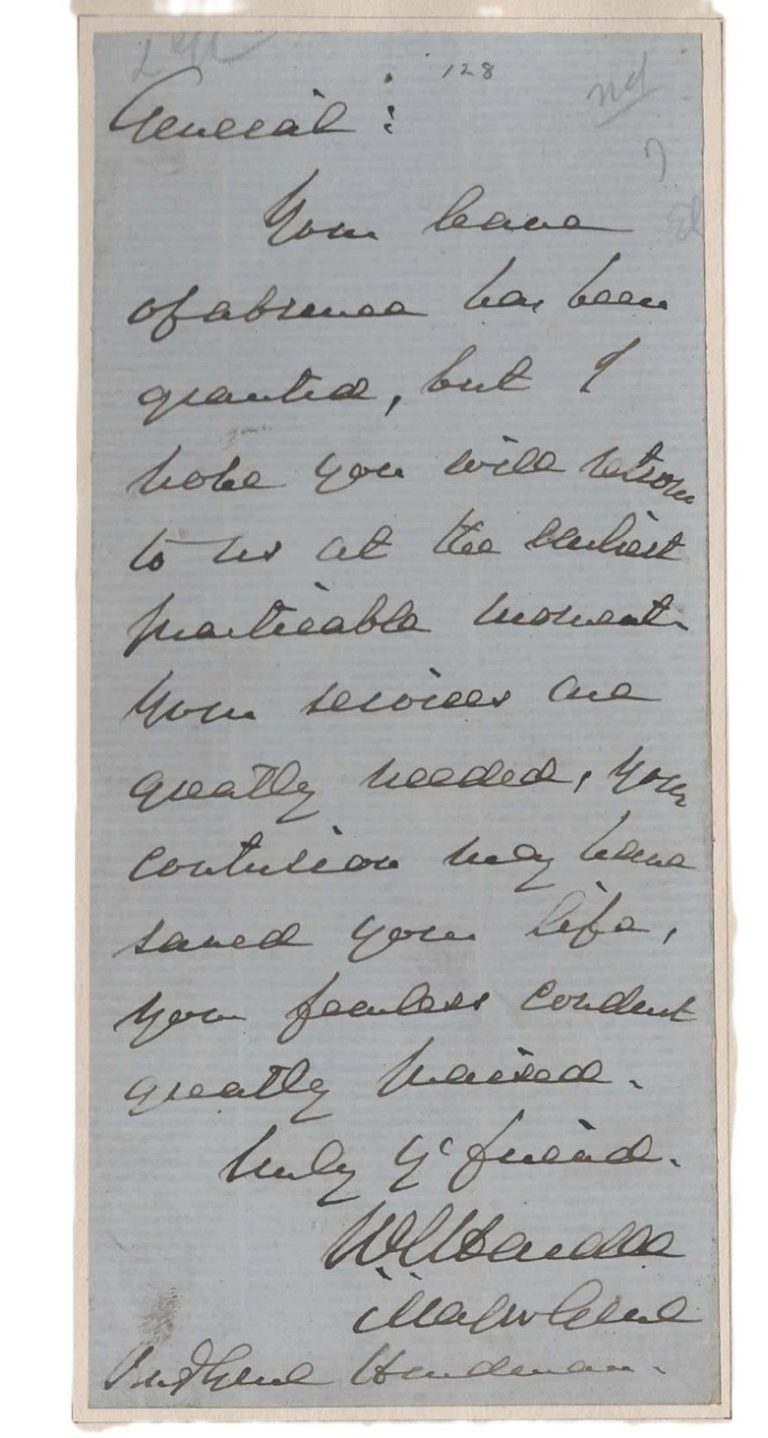 128
General :
Your leave
of absence has been
granted, but I
hope you will return
to us at the earliest
practicable moment.
Your services are
greatly needed, Your
contusion may have
saved your life,
your fearless conduct
greatly praised.
Truly yr friend.
W J Hardee
Major Genl
Genl Hindman.